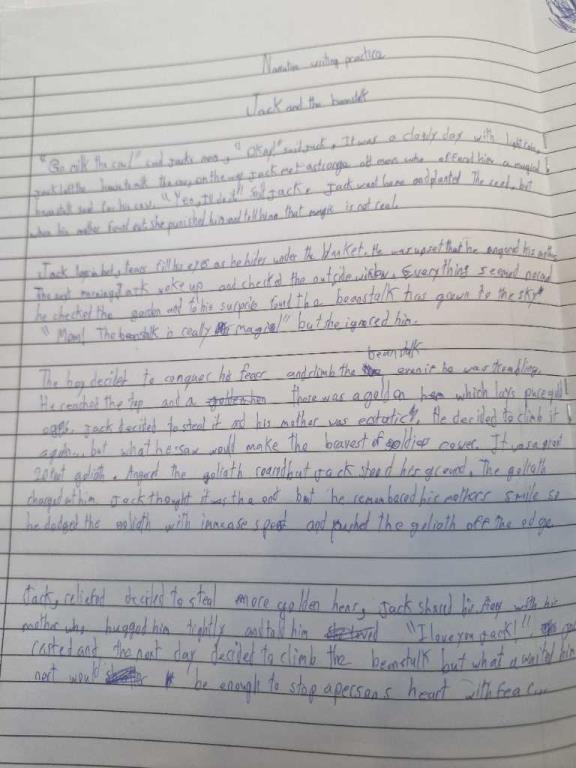 Narrative writing practice
Jack and the beanstalk
"Go milk the cow!" said Jacks mom, "Okay" said Jack. It was a cloudy day with
Jack left the house to milk the cow, on the way Jack met a strange old man who offered him a magical
beanstalk seed for his cow. "Yes, I'll do it" said Jack. Jack went home and planted the seed, but
when his mother found out she punished him and told him that magic is not real.
Jack lays in bed, tears fill his eyes as he hides under the blanket. He was upset that he angered his mother
The next morning Jack woke up and checked the outside window, Everything seemed normal
he checked the garden and to his surprise found the beanstalk has grown to the sky
"Mom! The beanstalk is really magical" but she ignored him.
beanstalk
The boy decided to conquer his fear and climb the even if he was trembling.
He reached the top and a there was a golden hen which lays pure gold
eggs. Jack decided to steal it and his mother was ecstatic. He decided to climb it
again... but what he saw would make the bravest of soldiers cower. It was a giant
20 foot goliath. Angered the goliath roared but Jack stood his ground. The goliath
charged at him, Jack thought it was the end but he remembered his mothers smile so
he dodged the goliath with immense speed and pushed the goliath off the edge
Jack, relieved decided to steal more golden hens, Jack shared his story with his
mother who hugged him tightly and told him "I love you Jack!",
rested and the next day decided to climb the beanstalk but what awaited him
next would be enough to stop a persons heart with fear...